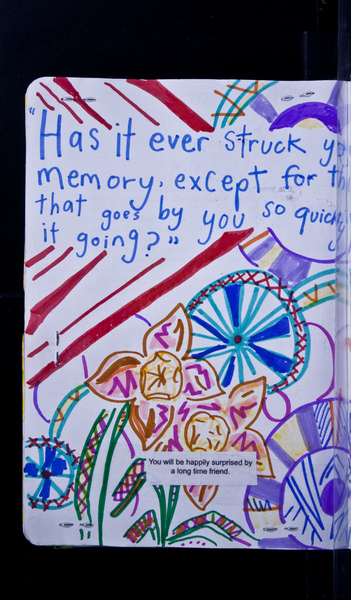 "Has it ever struck yo
memory, except for th
that goes by you so quickly
it going?"
You will be happily surprised by
a long time friend.